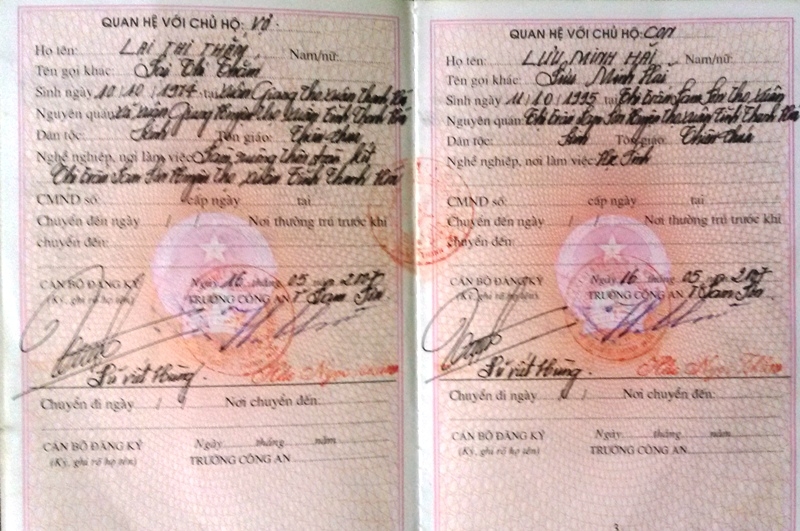 QUAN HỆ VỚI CHỦ HỘ: Vợ.
Họ tên: LẠI THỊ THẮM Nam/nữ:
Tên gọi khác: Lại Thị Thắm
Sinh ngày 10/10/1974 tại Xuân Giang Thọ Xuân Thanh Hóa
Nguyên quán: Xã Xuân Giang Huyện Thọ Xuân Tỉnh Thanh Hóa
Dân tộc: Kinh Tôn giáo: Thiên chúa
Nghề nghiệp, nơi làm việc:
Thị trấn Lam Sơn Huyện Thọ Xuân Tỉnh Thanh Hóa
CMND số: cấp ngày tại
Chuyển đến ngày / / Nơi thường trú trước khi
chuyển đến:
CÁN BỘ ĐĂNG KÝ Ngày 16 tháng 05 năm 2007
(Ký, ghi rõ họ tên) TRƯỞNG CÔNG AN T. Lam Sơn
Lê Viết Hùng.
Chuyển đi ngày / / Nơi chuyển đến:
CÁN BỘ ĐĂNG KÝ Ngày tháng năm
(Ký, ghi rõ họ tên) TRƯỞNG CÔNG AN
QUAN HỆ VỚI CHỦ HỘ: CON
Họ tên: LƯU MINH HẢI Nam/nữ:
Tên gọi khác: Lưu Minh Hải
Sinh ngày 11/10/1995 tại Thị trấn Lam Sơn Thọ Xuân
Nguyên quán: Thị trấn Lam Sơn Thọ Xuân Tỉnh Thanh Hóa
Dân tộc: Kinh Tôn giáo: Thiên chúa
Nghề nghiệp, nơi làm việc: Học sinh
CMND số: cấp ngày tại
Chuyển đến ngày / / Nơi thường trú trước khi
chuyển đến:
CÁN BỘ ĐĂNG KÝ Ngày 16 tháng 05 năm 2007
(Ký, ghi rõ họ tên) TRƯỞNG CÔNG AN T. Lam Sơn
Lê Viết Hùng
Chuyển đi ngày / / Nơi chuyển đến:
CÁN BỘ ĐĂNG KÝ Ngày tháng năm
(Ký, ghi rõ họ tên) TRƯỞNG CÔNG AN
3